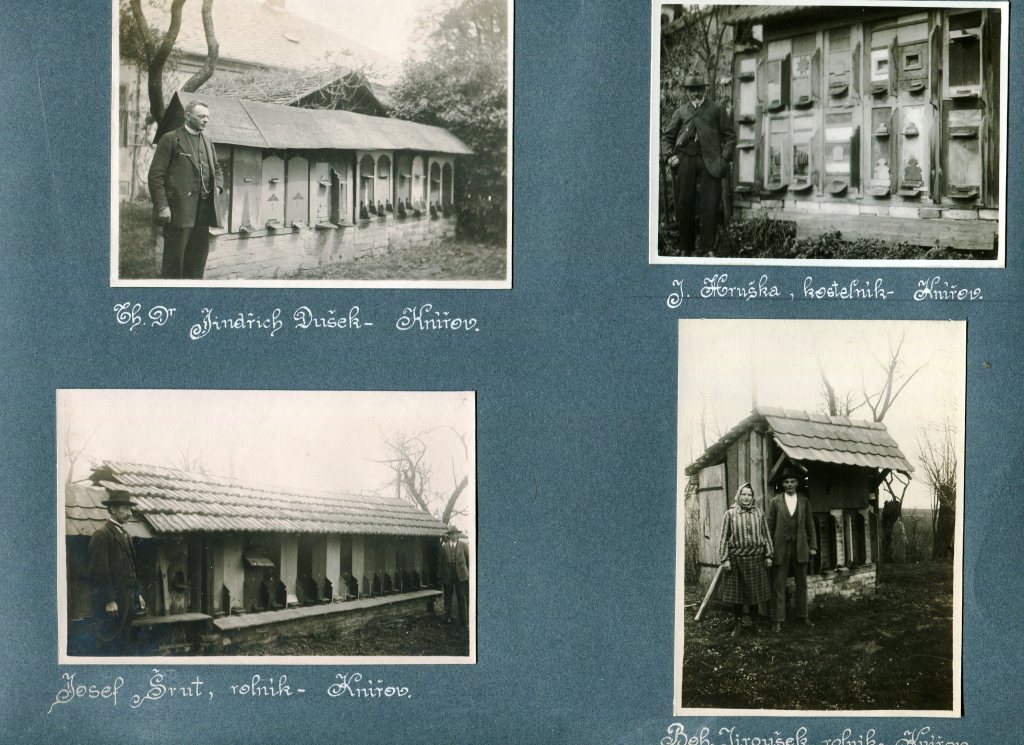 Th. Dr Jindřich Dušek - Knířov.
J. Hruška, kostelník - Knířov.
Josef Šrut, rolník - Knířov.
Boh. Jiroušek, rolník - Knířov.